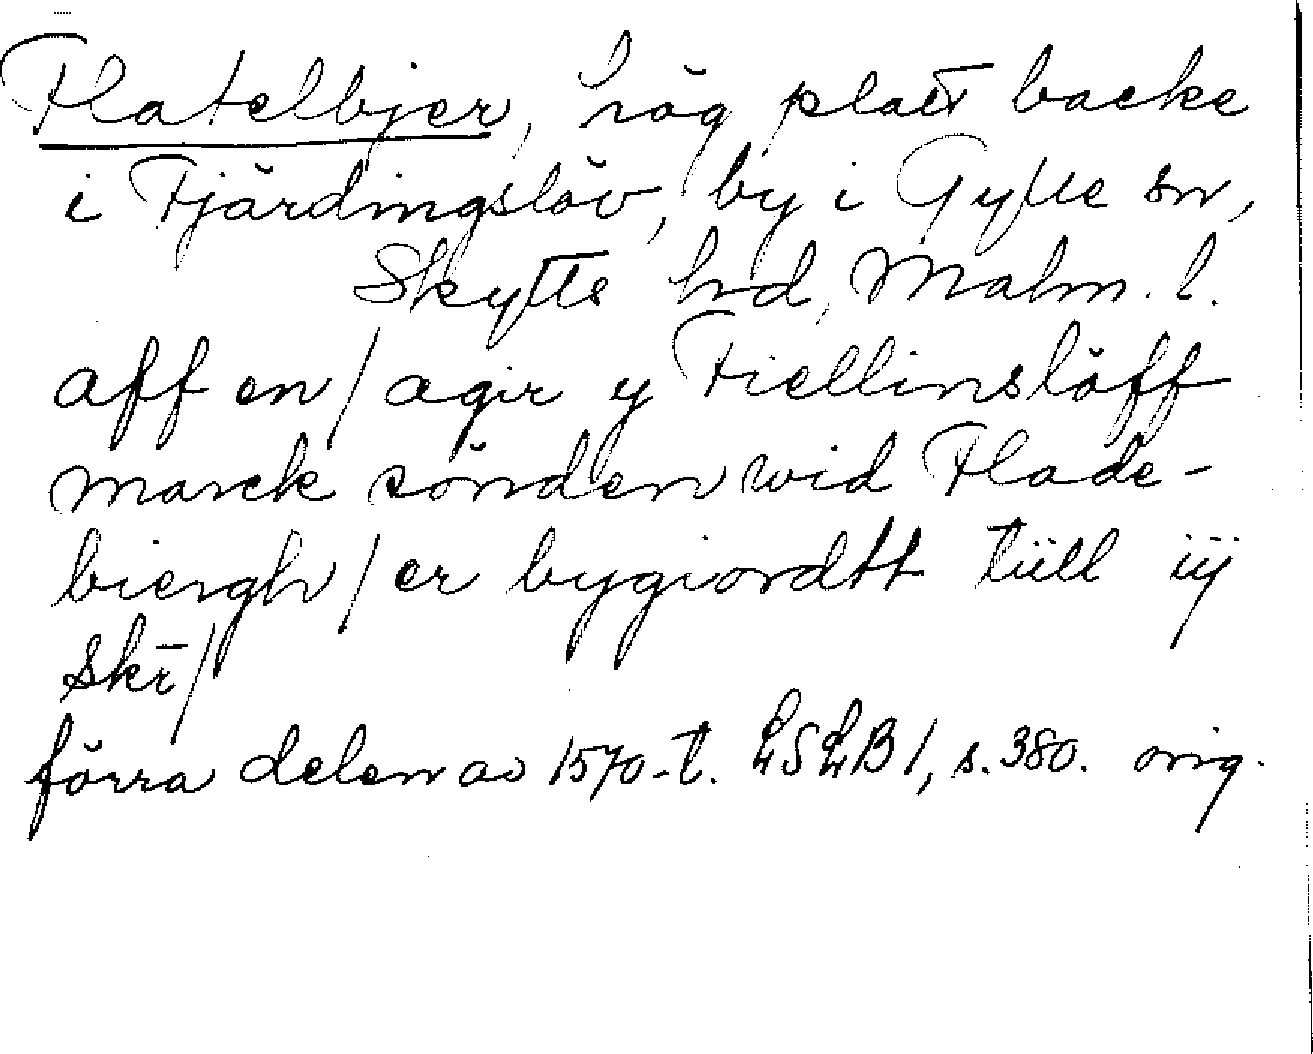 Flatelbjer, hög platt backe
i Fjärdingslöv, by i Gylle sn,
Skytts hd, Malm. l.
aff en / agir y Fiellinslöff
marck sönden wid Flade-
biergh / er bygiordtt tiill iij
skī /
förra delen av 1570-t. LSLB 1, s. 380. orig.